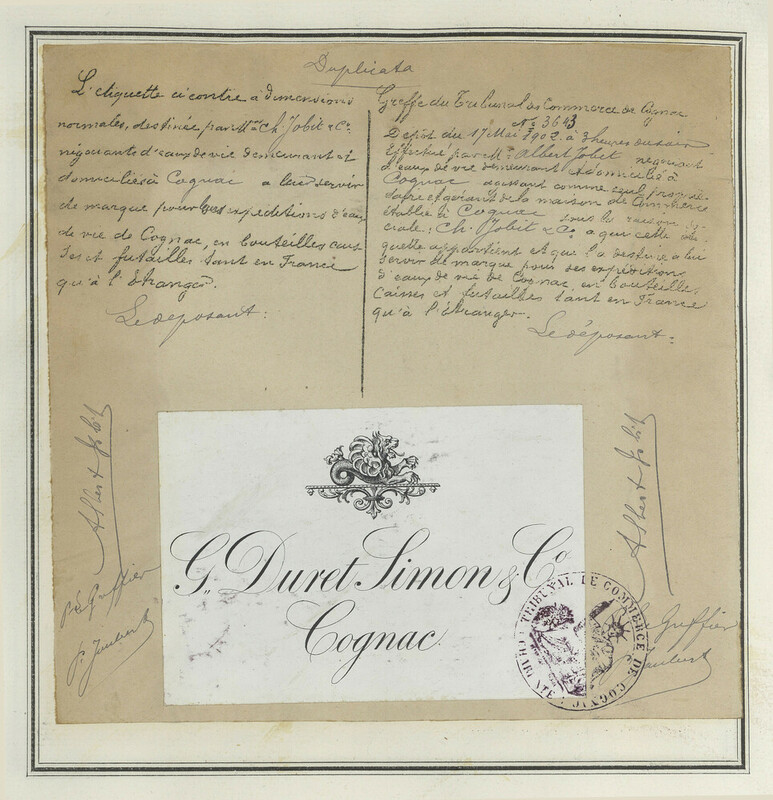 Duplicata
L'etiquette ci contre à dimensions
normales, destinée par MM. Ch. Jobit & Co
négociants d'eaux de vie demeurant et
domiciliés à Cognac a leur servir
de marque pour les expéditions d'eau
de vie de Cognac, en bouteilles, cais
ses et futailles tant en France
qu'à l'Etranger.
Le déposant:
Greffe du Tribunal de Commerce de Cognac
No 3643
Dépôt du 17 Mai 1902 à 3 heures du soir
Effectué par M. Albert Jobit négociant
d'eaux de vie demeurant & domicilié à
Cognac agissant comme seul proprié-
taire et gérant de la maison de Commerce
établie à Cognac sous la raison so-
ciale: Ch. Jobit & Co. a qui cette éti-
quette appartient et que l'a destinée a lui
servir de marque pour ses expéditions
d'eaux de vie de Cognac, en bouteilles,
caisses et futailles tant en France
qu'à l'Etranger.
Le déposant:
Albert Jobit
Greffier
P. Joubert
G. Duret Simon & Co
Cognac
TRIBUNAL DE COMMERCE DE COGNAC
Albert Jobit
Le Greffier
Joubert